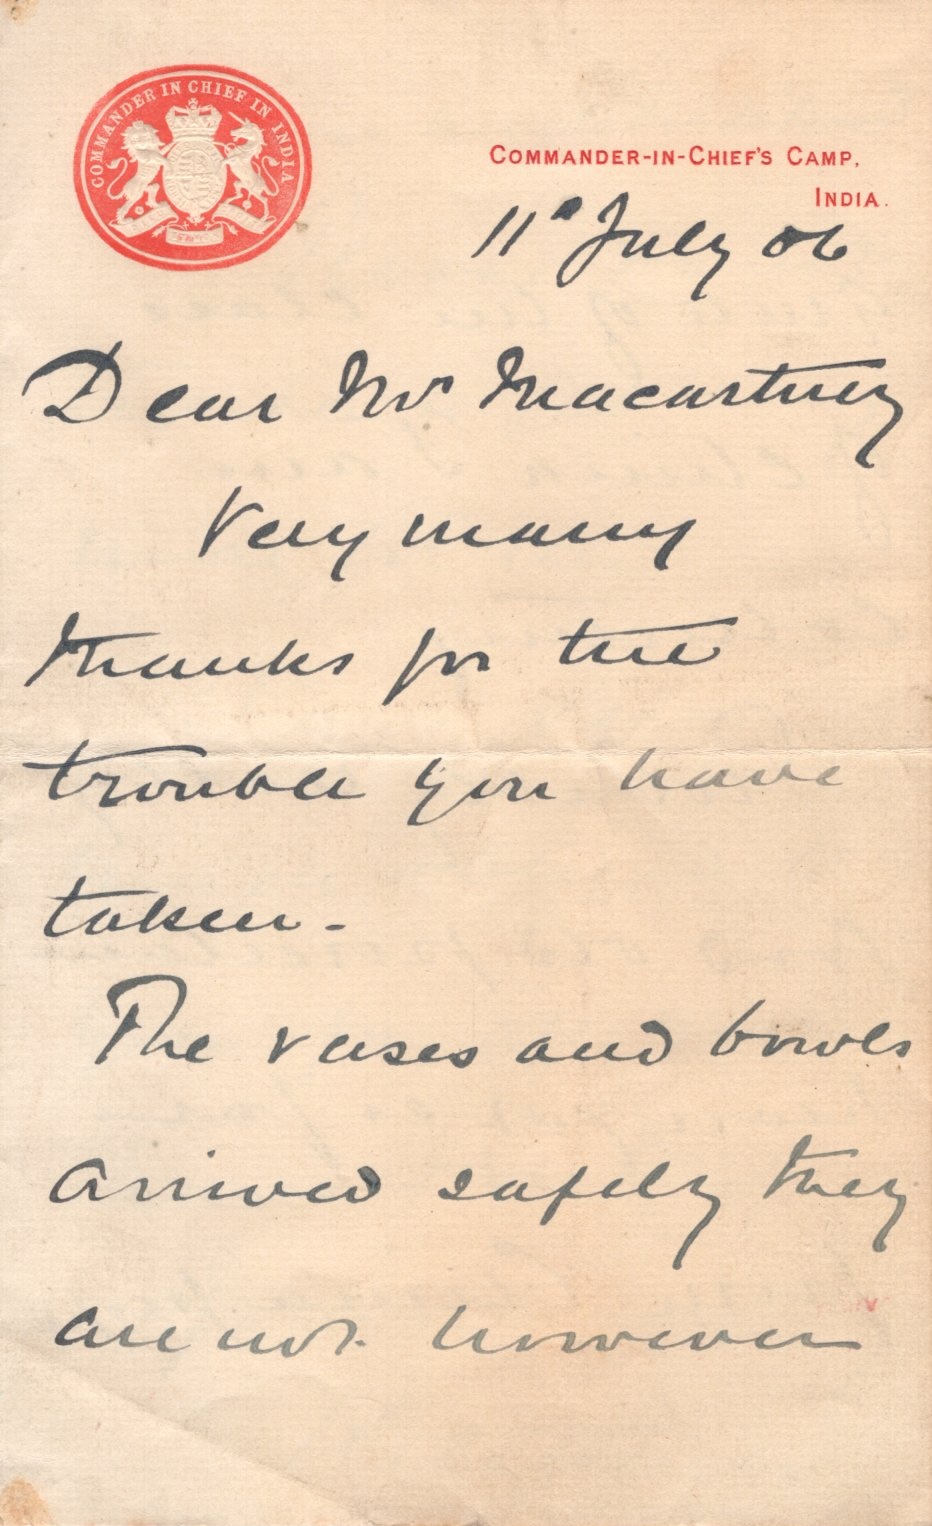 COMMANDER IN CHIEF IN INDIA
COMMANDER-IN-CHIEF'S CAMP,
INDIA.
11th July 06
Dear Mr Macartney
Very many
thanks for the
trouble you have
taken.
The vases and bowls
arrived safely they
are not however